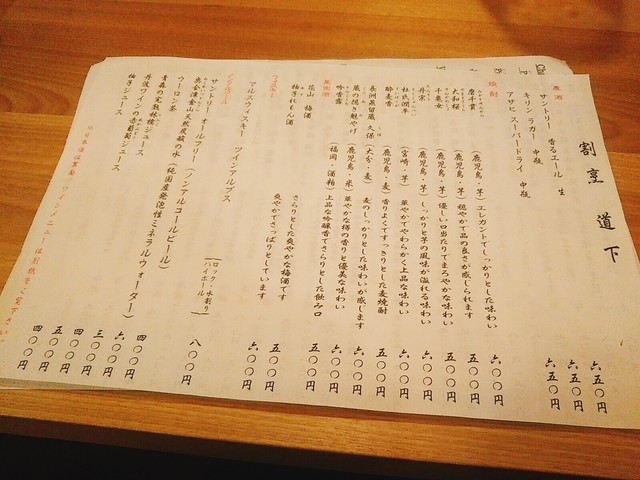 割烹 道下
麦酒
サントリー 香るエール 生 六五〇円
キリン ラガー 中瓶 六五〇円
アサヒ スーパードライ 中瓶 六五〇円
焼酎
(鹿児島・芋) エレガントでしっかりとした味わい 六〇〇円
大和桜 (鹿児島・芋) 穏やかで品の良さが感じられます 五〇〇円
千亀女 (鹿児島・芋) 優しい口当たりでまろやかな味わい 五〇〇円
丹宗 (鹿児島・芋) しっかりと芋の風味が溢れる味わい 六〇〇円
杜氏潤平 (宮崎・芋) 華やかでやわらかく上品な味わい 六〇〇円
酔麦香 (鹿児島・麦) 香りよくてすっきりとした麦焼酎 五〇〇円
長洲蒸留蔵 久保 (大分・麦) 麦のしっかりとした味わいが感じます 六〇〇円
蔵の撓き魁やげ (鹿児島・米) 華やかな樽の香りと優美な味わい 六〇〇円
吟香露 (福岡・酒粕) 上品な吟醸香でさらりとした飲み口 五〇〇円
果実酒
花山 梅酒 さらりとした爽やかな梅酒です 五〇〇円
柚子れもん酒 爽やかでさっぱりとしています 六〇〇円
ウイスキー
マルスウイスキー ツインアルプス (ロック・水割り ハイボール) 八〇〇円
ソフトドリンク
サントリー オールフリー (ノンアルコールビール) 四〇〇円
奥会津金山天然炭酸の水 (純国産発泡性ミネラルウォーター) 六〇〇円
ウーロン茶 三〇〇円
青森の完熟林檎ジュース 四〇〇円
丹波ワインの赤葡萄ジュース 五〇〇円
柚子ジュース 四〇〇円
※日本酒は黒菊、ワインメニューは別紙をご覧下さい。